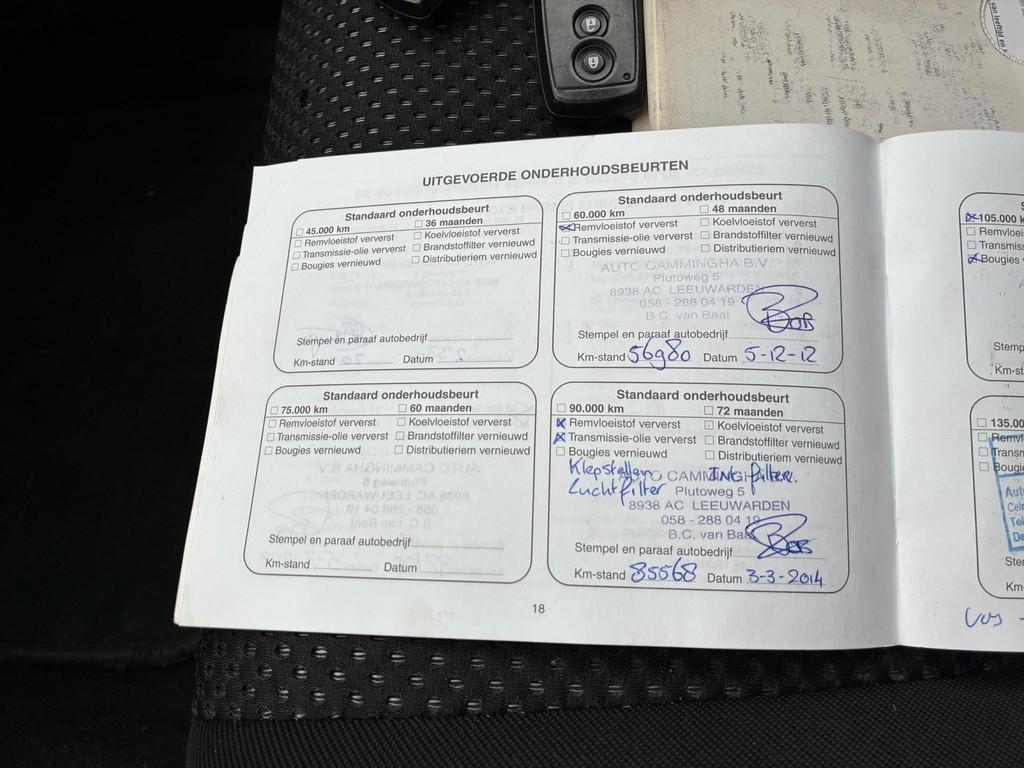 UITGEVOERDE ONDERHOUDSBEURTEN
Standaard onderhoudsbeurt
☐ 45.000 km ☐ 36 maanden
☐ Remvloeistof ververst ☐ Koelvloeistof ververst
☐ Transmissie-olie ververst ☐ Brandstoffilter vernieuwd
☐ Bougies vernieuwd ☐ Distributieriem vernieuwd
Stempel en paraaf autobedrijf
Km-stand Datum
Standaard onderhoudsbeurt
☐ 60.000 km ☐ 48 maanden
☒ Remvloeistof ververst ☐ Koelvloeistof ververst
☐ Transmissie-olie ververst ☐ Brandstoffilter vernieuwd
☐ Bougies vernieuwd ☐ Distributieriem vernieuwd
AUTO CAMMINGHA B.V.
Plutoweg 5
8938 AC LEEUWARDEN
058 - 288 04 19
B.C. van Baal
Stempel en paraaf autobedrijf
Km-stand 56980 Datum 5-12-12
Standaard onderhoudsbeurt
☐ 75.000 km ☐ 60 maanden
☐ Remvloeistof ververst ☐ Koelvloeistof ververst
☐ Transmissie-olie ververst ☐ Brandstoffilter vernieuwd
☐ Bougies vernieuwd ☐ Distributieriem vernieuwd
Stempel en paraaf autobedrijf
Km-stand Datum
Standaard onderhoudsbeurt
☐ 90.000 km ☐ 72 maanden
☒ Remvloeistof ververst ☐ Koelvloeistof ververst
☒ Transmissie-olie ververst ☐ Brandstoffilter vernieuwd
☐ Bougies vernieuwd ☐ Distributieriem vernieuwd
Klepstellen Int filter.
Luchtfilter
AUTO CAMMINGHA
Plutoweg 5
8938 AC LEEUWARDEN
058 - 288 04 19
B.C. van Baal
Stempel en paraaf autobedrijf
Km-stand 85568 Datum 3-3-2014
18
☒ 105.000
☐ Remvloei
☐ Transmis
☒ Bougies
Stemp
Km-st
☐ 135.00
☐ Remvl
☐ Transm
☐ Bougi
Aut
Tel
Ster
Km
van leeftijd en